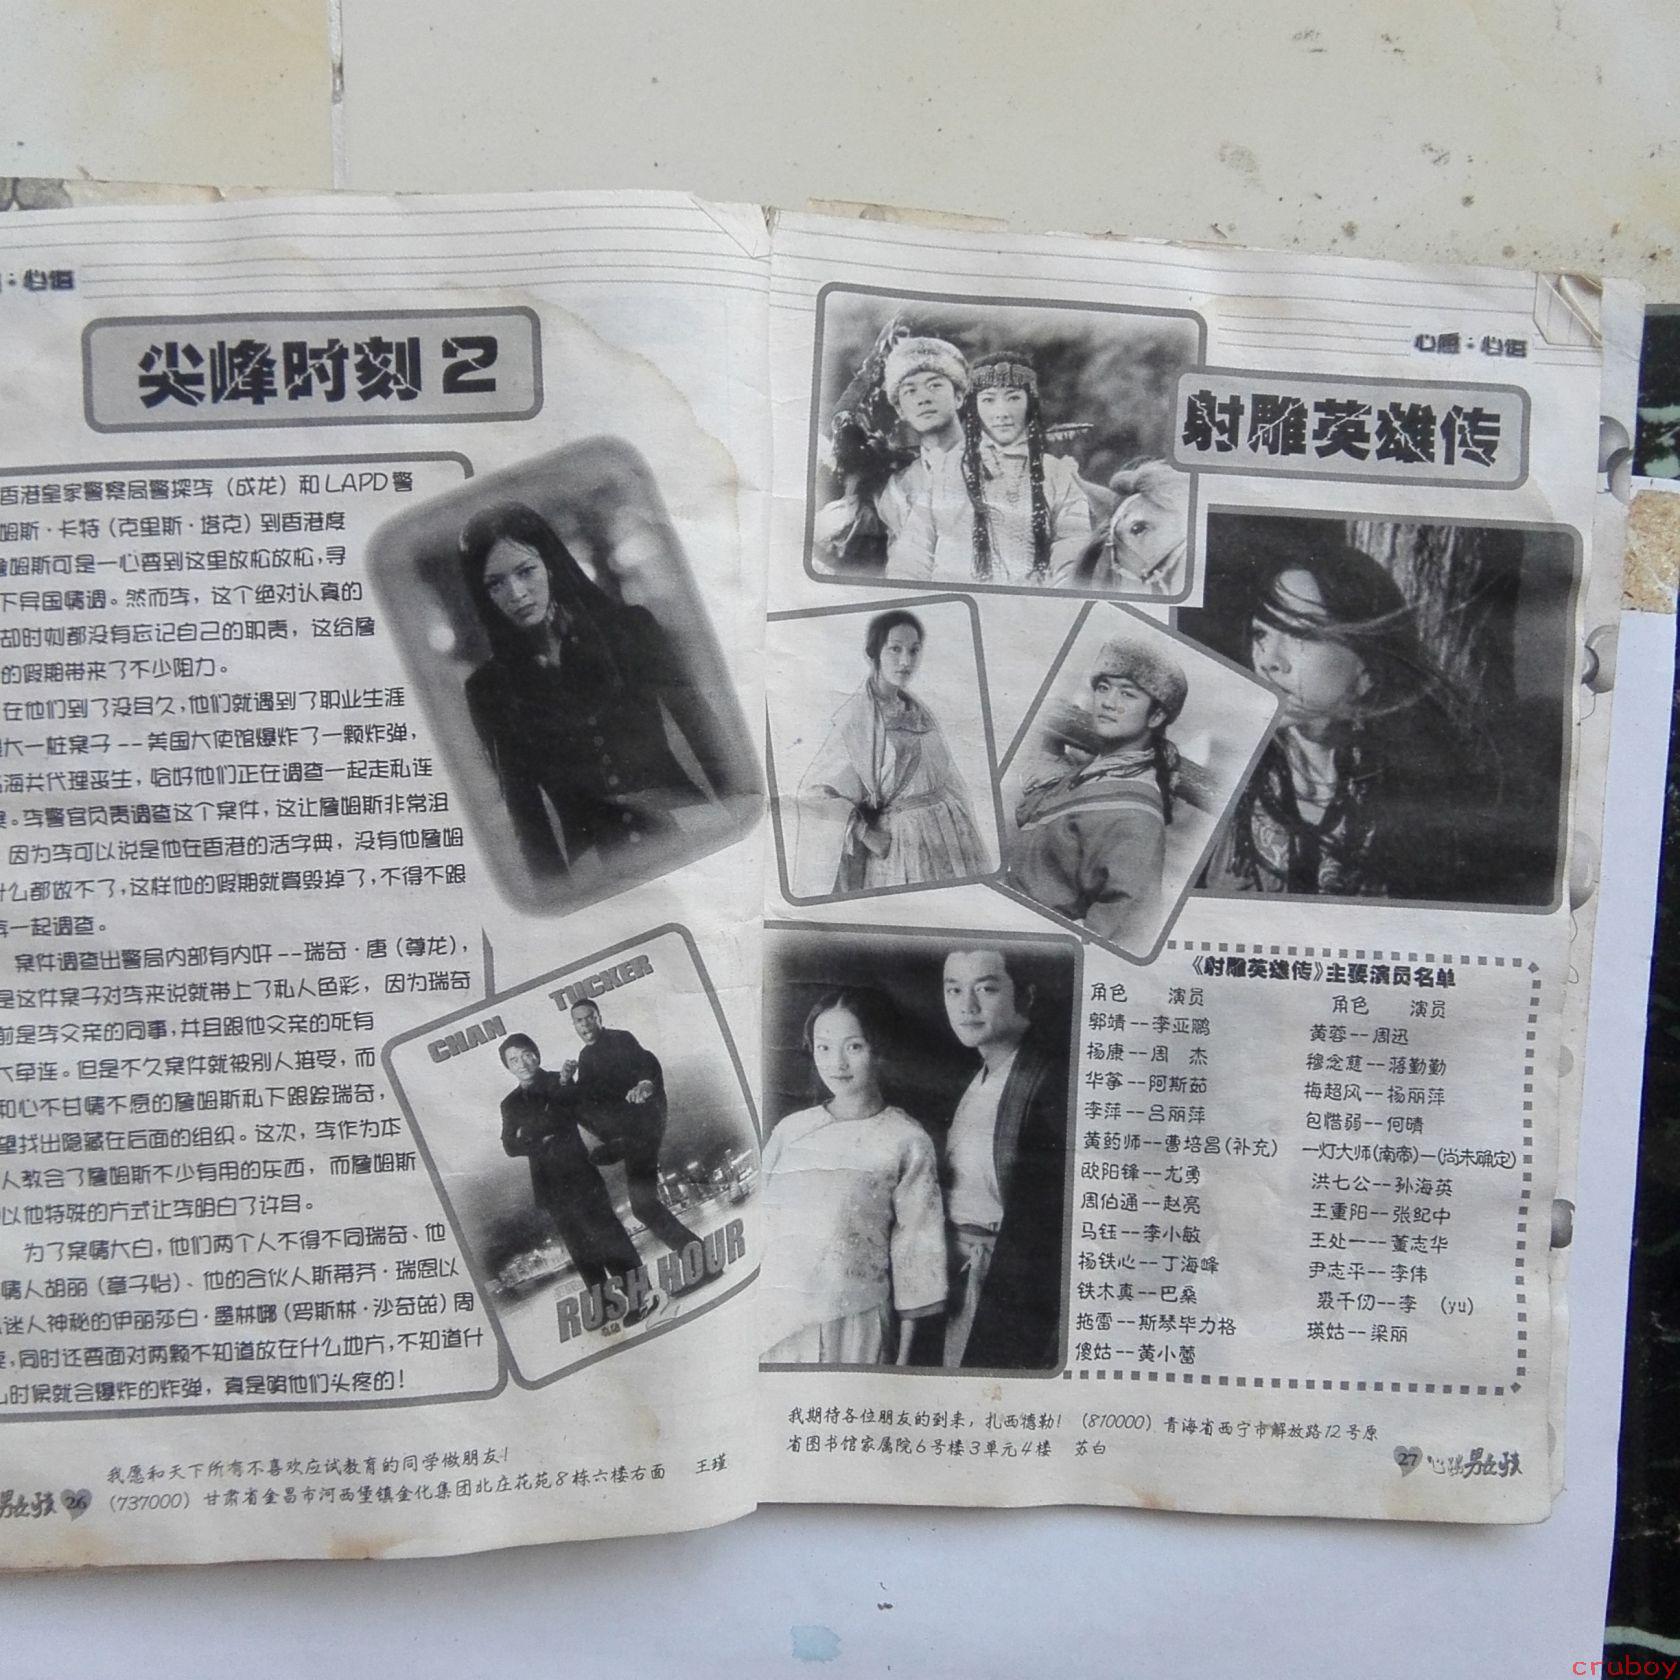 ：心语
尖峰时刻2
香港皇家警察局警探李（成龙）和LAPD警
姆斯·卡特（克里斯·塔克）到香港度
詹姆斯可是一心要到这里放松放松，寻
下异国情调。然而李，这个绝对认真的
却时刻都没有忘记自己的职责，这给詹
的假期带来了不少阻力。
在他们到了没多久，他们就遇到了职业生涯
大一桩案子--美国大使馆爆炸了一颗炸弹，
海关代理丧生，恰好他们正在调查一起走私连
案。李警官负责调查这个案件，这让詹姆斯非常沮
因为李可以说是他在香港的活字典，没有他詹姆
什么都做不了，这样他的假期就算毁掉了，不得不跟
李一起调查。
案件调查出警局内部有内奸--瑞奇·唐（尊龙），
是这件案子对李来说就带上了私人色彩，因为瑞奇
前是李父亲的同事，并且跟他父亲的死有
大牵连。但是不久案件就被别人接受，而
和心不甘情不愿的詹姆斯私下跟踪瑞奇，
望找出隐藏在后面的组织。这次，李作为本
人教会了詹姆斯不少有用的东西，而詹姆斯
以他特殊的方式让李明白了许多。
为了案情大白，他们两个人不得不同瑞奇、他
情人胡丽（章子怡）、他的合伙人斯蒂芬·瑞恩以
迷人神秘的伊丽莎白·墨林娜（罗斯林·沙奇兹）周
同时还要面对两颗不知道放在什么地方，不知道什
么时候就会爆炸的炸弹，真是够他们头疼的！
CHAN TUCKER
RUSH HOUR
2
我愿和天下所有不喜欢应试教育的同学做朋友！
（737000）甘肃省金昌市河西堡镇金化集团北庄花苑8栋六楼右面 王瑾
男女孩 26
心愿：心语
射雕英雄传
《射雕英雄传》主要演员名单
角色 演员
郭靖--李亚鹏
杨康--周 杰
华筝--阿斯茹
李萍--吕丽萍
黄药师--曹培昌（补充）
欧阳锋--尤勇
周伯通--赵亮
马钰--李小敏
杨铁心--丁海峰
铁木真--巴桑
拖雷--斯琴毕力格
傻姑--黄小蕾
角色 演员
黄蓉--周迅
穆念慈--蒋勤勤
梅超风--杨丽萍
包惜弱--何晴
一灯大师（南帝）—（尚未确定）
洪七公--孙海英
王重阳--张纪中
王处一--董志华
尹志平--李伟
裘千仞--李 (yu)
瑛姑--梁丽
我期待各位朋友的到来，扎西德勒！（810000）青海省西宁市解放路12号原
省图书馆家属院6号楼3单元4楼 苏白
27 男女孩
cruboy